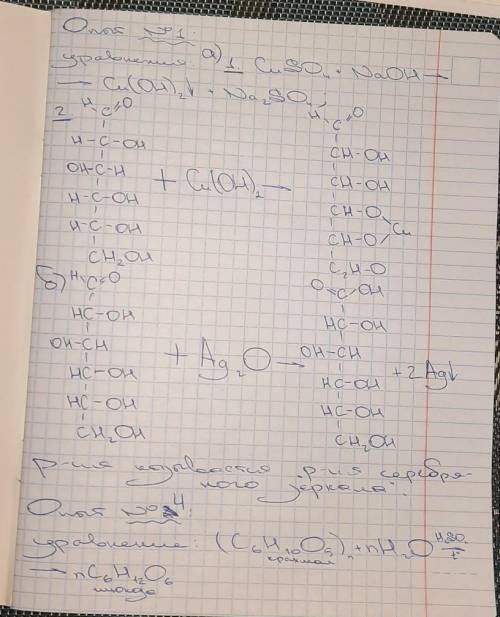 Опыт №1:
уравнения: а) 1. CuSO₄ + NaOH →
→ Cu(OH)₂↓ + Na₂SO₄;
2 H-C=O H-C=O
H-C-OH CH-OH
OH-C-H + Cu(OH)₂ → CH-OH
H-C-OH CH-O
H-C-OH CH-O Cu
CH₂OH C₂H-O
б) H-C=O O=C-OH
HC-OH HC-OH
OH-CH + Ag₂O → OH-CH + 2Ag↓
HC-OH HC-OH
HC-OH HC-OH
CH₂OH CH₂OH
р-ия называется "р-ия серебря-
ного зеркала".
Опыт №4:
уравнение: (C₆H₁₀O₅)ₙ + nH₂O H₂SO₄ t
крахмал
→ nC₆H₁₂O₆